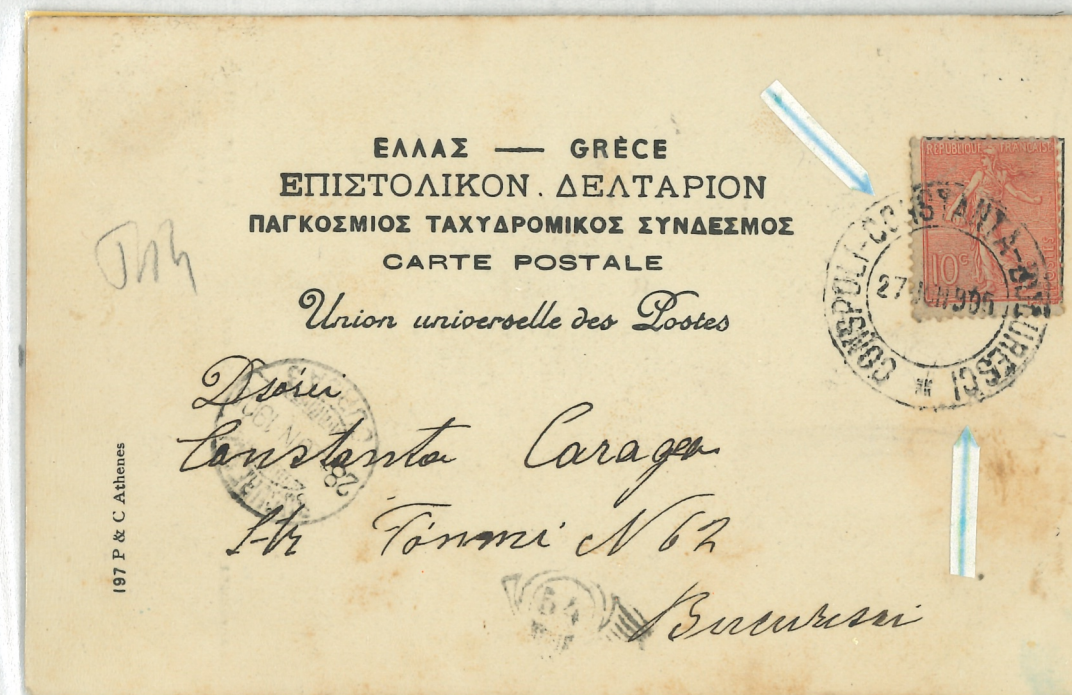 ΕΛΛΑΣ — GRÈCE
ΕΠΙΣΤΟΛΙΚΟΝ. ΔΕΛΤΑΡΙΟΝ
ΠΑΓΚΟΣΜΙΟΣ ΤΑΧΥΔΡΟΜΙΚΟΣ ΣΥΝΔΕΣΜΟΣ
CARTE POSTALE
Union universelle des Postes
REPUBLIQUE FRANÇAISE
10c
CONSPOLI-CONSTANTA-BUCURESCI *
27
Constanta Caragea
Str N 62
Bucuresci
28
54
197 P & C Athenes